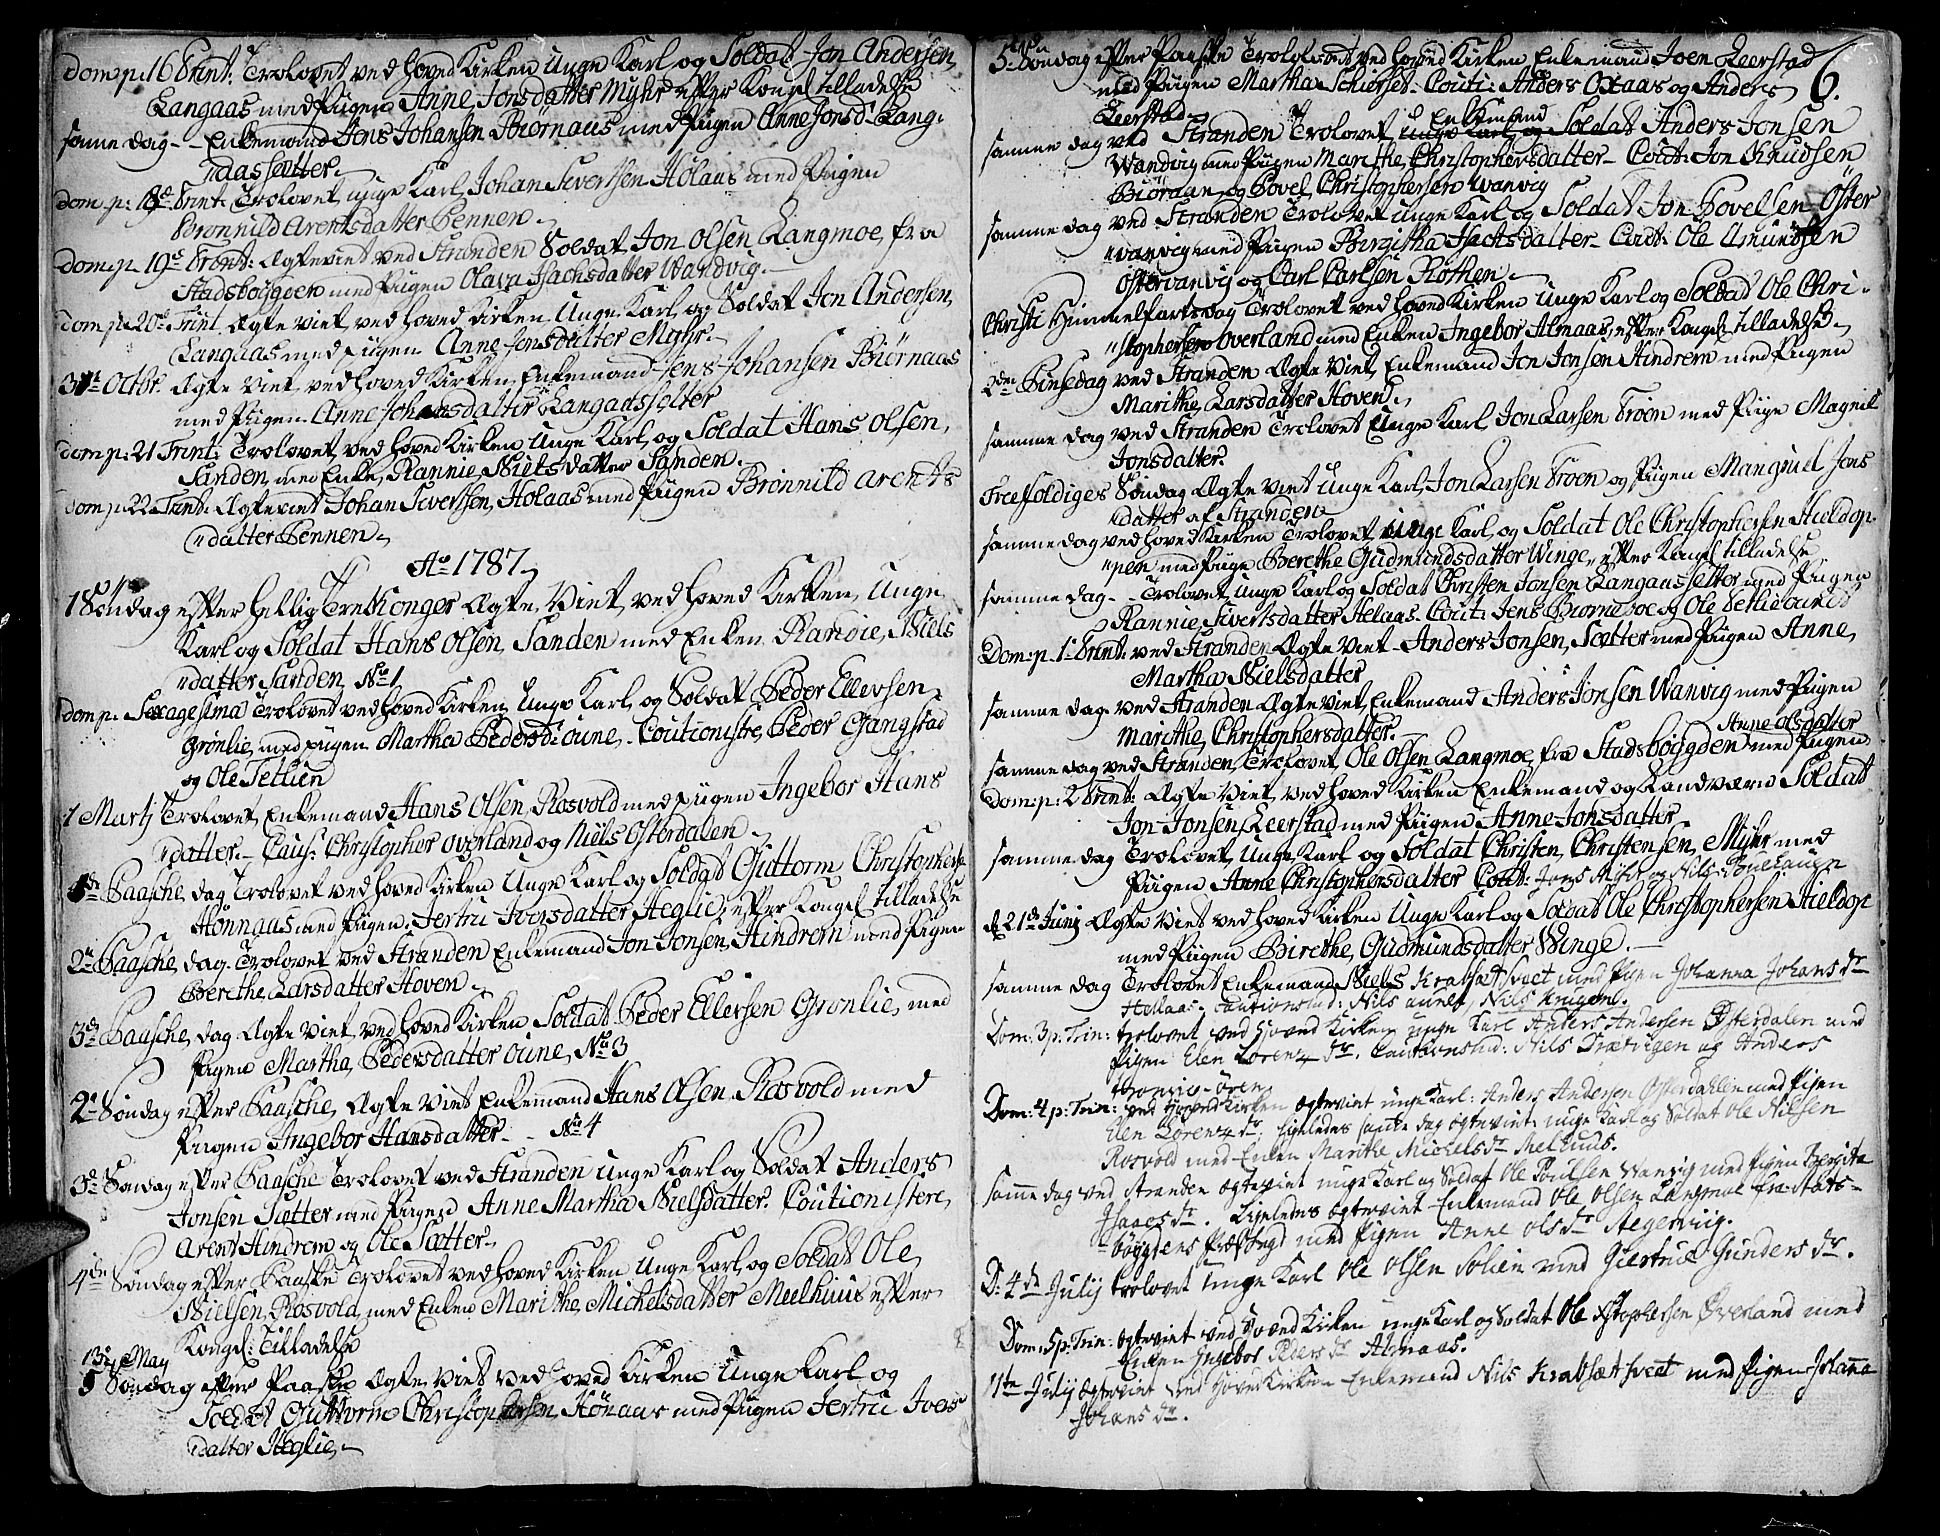 Dom: p: 16 Trint: Trolovet ved hoved Kirken Unge Karl og Soldat Jon Andersen
Langaas med Pigen Anne Jonsdatter Myhr efter Kongel: tilladelse
samme dag - - Enkemand Jens Johansen Biörnaas med Pigen Anne Jonsd: Lang-
"aassetter.
Dom: p: 18de Trint: Trolovet unge Karl Johan Sivertsen Holaas med Pigen
Brönnild Arentsdatter Pennen.
Dom: p. 19de Trint: Ægteviet ved Stranden Soldat Jon Olsen Langmoe fra
Stadsbøygden med Pigen Olava Isachsdatter Wandvig.
Dom: p: 20de Trint Ægte viet ved hoved Kirken Unge Karl og Soldat Jon Andersen
Langaas med pigen Anne Jensdatter Myhr.
31te Octbr. Ægte Viet ved hoved Kirken Enkemand Jens Johansen Biörnaas
med Pigen Anne Johansdatter Langaassetter
Dom: p: 21 Trint: Trolovet ved hoved Kirken Unge Karl og Soldat Hans Olsen
Sanden med Enke Rannie Nielsdatter Sanden.
Dom: p: 22 Trint: Ægteviet Johan Sivertsen Holaas med Pigen Brönnild Arents
"datter Pennen.
Ao 1787
1 Söndag efter hellig Tre Konger Ægte Viet ved hoved Kirken Unge
Karl og Soldat Hans Olsen Sanden med Enken Rannie Niels
"datter Sanden No 1
Dom p: Sexagesima Trolovet ved hoved Kirken Unge Karl og Soldat Peder Ellevsen
Grönlie med pigen Martha Pedersd: Oune - Coutionistre Peder Gangstad
og Ole Tetlien
1 Martj Trolovet Enkemand Hans Olsen Rosvold med pigen Ingebor Hans
"datter. - Caus: Christopher Overland og Niels Osterdalen.
1de Paasche dag Trolovet ved hoved Kirken Unge Karl og Soldat Guttorm Christophersen
Hönnaas med Pigen Jertru Iversdatter Heglie efter Kongel tilladelse
2de Paasche dag Trolovet ved Stranden Enkemand Jon Jonsen Hindrem med Pigen
Berethe Larsdatter Hoven.
3de Paasche dag Ægte viet ved hoved Kirken Soldat Peder Ellersen Grönlie med
Pigen Martha Pedersdatter Oune No 3
2de Söndag efter Paasche Ægte Viet Enkemand Hans Olsen Rosvold med
Pigen Ingebor Hansdatter - No 4
3de Söndag efter Paasche Trolovet ved Stranden Unge Karl og Soldat Anders
Jonsen Sætter med Pigen Anne Martha Nielsdatter. Coutionistere
Arent Hindrem og Ole Sætter
4de Söndag efter Paaske Trolovet ved hoved Kirken Unge Karl og Soldat Ole
Nielsen Rosvold med Enken Marithe Michelsdatter Meelhuus efter
Kongel: Tilladelse
13de May
5 Söndag efter Paaske Ægte Viet ved hoved Kirken Unge Karl og
Soldat Guttorm Christophersen Hönaas med Pigen Jertru Ivers
"datter Heglie
6.
5te Söndag efter Paaske Trolovet ved hoved Kirken Enkemand Joen Leerstad
med Pigen Martha Schierset. Couti: Anders Oxaas og Anders
Leerstad.
Enkemand
samme dag ved Stranden Trolovet unge Karl og Soldat Anders Jonsen
Wandvig med Pigen Marithe Christophersdatter - Cout: Jon Knudsen
Biöraan og Povel Christophersen Wanvig
samme dag ved Stranden Trolovet Unge Karl og Soldat Jon Povelsen Öster
"vanvig med Pigen Birgitha Isachsdatter - Cout: Ole Amundsen
Östervanvig og Carl Carlsen Rothen.
Christi Himmelfartsdag Trolovet ved hoved Kirken Unge Karl og Soldat Ole Chri-
"stophersen Overland med Enken Ingebor Almaas, efter Kongel tilladelse.
2den Pinsedag ved Stranden Ægte Viet Enkemand Jon Jonsen Hindrem med Pigen
Marithe Larsdatter Hoven.
samme dag ved Stranden Trolovet Unge Karl Jon Larsen Troen med Pige Magnil
Jonsdatter.
Treefoldiges Söndag Ægte Viet Unge Karl Jon Larsen Troen og Pigen Mangniel Jons
"datter af Stranden
samme dag ved hoved Kirken Trolovet unge Karl og Soldat Ole Christophersen Hieldop
"pen med Pige Berethe Gudmundsdatter Winge efter Kongel tilladelse
samme dag - - Trolovet Unge Karl og Soldat Christen Jonsen Langaassetter med Pigen
Rannie Sivertsdatter Helaas. Cout: Jens Biorneboe og Ole Tetlie
Dom: p. 1 Trint: ved Stranden Ægte Viet - Anders Jonsen Sætter med Pigen Anne
Martha Nielsdatter
samme dag ved Stranden Ægte Viet Enkemand Anders Jonsen Wanvig med Pigen
Marithe Christophersdatter.
Anne Olsdatter
samme dag ved Stranden Trolovet Ole Olsen Langmoe fra Stadsböygden med Pigen
Dom: p: 2 Trint: Ægte Viet ved hoved Kirken Enkemand og Landværn Soldat
Jon Jonsen Leerstad med Pigen Anne Jonsdatter
samme dag Trolovet Unge Karl og Soldat Christen Christensen Myhr med
Pigen Anne Christophersdatter Cout: Jens Myhr og Nils
d 21de Junij Ægte Viet ved hoved Kirken Unge Karl og Soldat Ole Christophersen Hieldop
med Pigen Birethe Gudmundsdatter Winge.
samme dag Trolovet Enkemand Niels Krabsætsveet med Pigen Johanna Johans dr
Hollaas - Cautionsted: Nils Aunet, Nils Krugen.
Dom: 3 p: Trin: trolovet ved Hoved Kirken unge Karl Anders Andersen Østerdalen med
Pigen Elen Lorentz dr. Cautionsted: Nils Trætvigen og Anders
Dom: 4 p: Trin: ved Hoved Kirken ægteviet unge Karl: Anders Andersen Østerdahlen med Pigen
Elen Lorentz dr. ligeledes samme dag ægteviet unge Karl og Soldat Ole Nilsen
Rosvold med Enken Marithe Michels dr Melhuus.
samme dag ved Stranden ægteviet unge Karl og Soldat Ole Poulsen Wanvig med Pigen Bergita
Isaaes dr. Ligeledes ægteviet Enkemand Ole Olsen Langmoe fra Stats-
bøygdens Præstegd med Pigen Anne Ols dr Aegervig.
D: 4de Julij trolovet Unge Karl Ole Olsen Solien med Giertrue Gunders dr.
Dom: 5 p: Trin: ægteviet ved Hoved Kirken unge Karl og Soldat Ole Xstophersen Øverland med
Enken Ingebor Peders dr Almaas.
11te Julij ægteviet ved Hoved Kirken Enkemand Nils Krabsætsveet med Pigen Johanna
Johans dr.